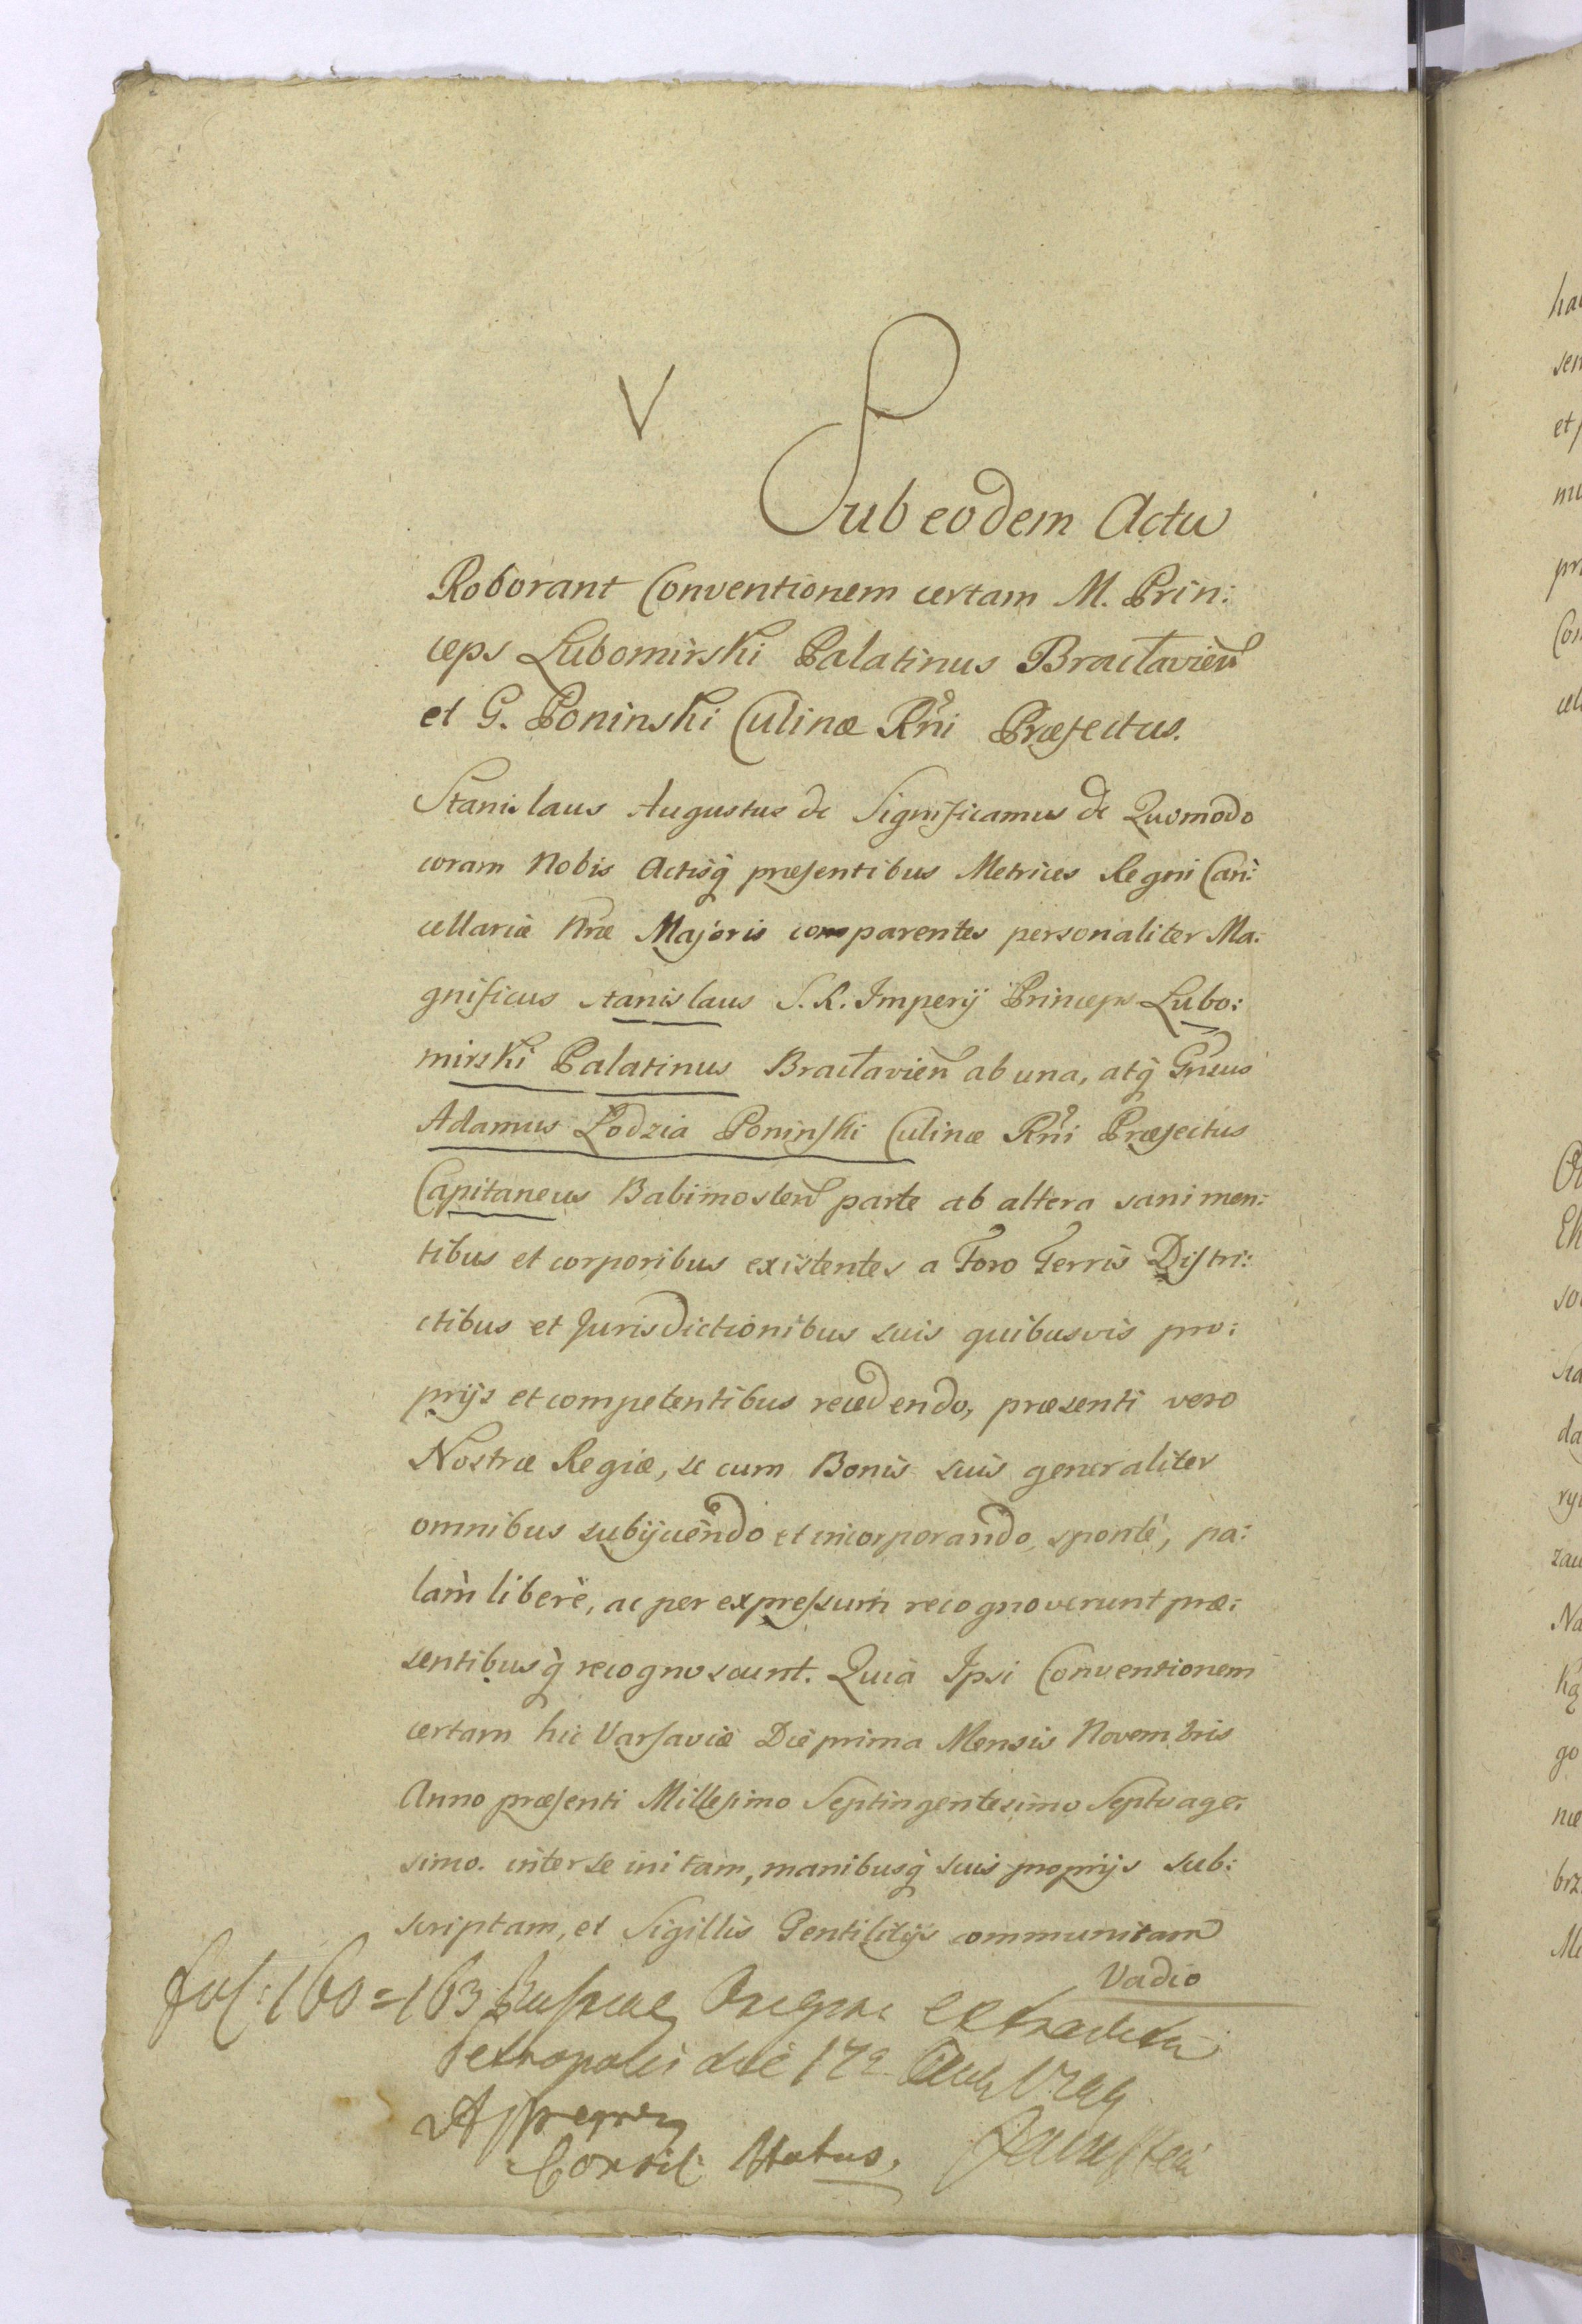 V
Sub eodem Actu
Roborant Conventionem certam M. Prin:
ceps Lubomirski Palatinus Bractavien̄
et G. Poninski Culinæ Rñi Præfectus.
Stanislaus Augustus &c Significamus &c Quomodo
coram Nobis Actisq̀ præsentibus Metrices Regni Can:
cellariæ Nræ Majoris comparentes personaliter Ma:
gnificus Stanislaus S. R. Imperij Princeps Lubo:
mirski Palatinus Bractavien̄ ab una, atq̀ Gnsus
Adamus Łodzia Poninski Culinæ Rñi Præfectus
Capitaneus Babimosten̄ parte ab altera sani men:
tibus et corporibus existentes a Foro Terris Distri:
ctibus et Jurisdictionibus suis quibusvis pro:
prijs et competentibus recedendo, præsenti vero
Nostræ Regiæ, se cum Bonis suis generaliter
omnibus subijciendo et incorporando, spontè, pa:
làm liberè, ac per expressum recognoverunt præ:
sentibusq̀ recognoscunt. Quia Ipsi Conventionem
certam hic Varsaviæ Die prima Mensis Novembris
Anno præsenti Millesimo Septingentesimo Septuage:
simo. inter se initam, manibusq̀ suis proprijs sub:
scriptam, et Sigillis Gentilitijs communitam
Vadio
fol: 160=163 extradita
Petropoli die 17
Consil: Status.